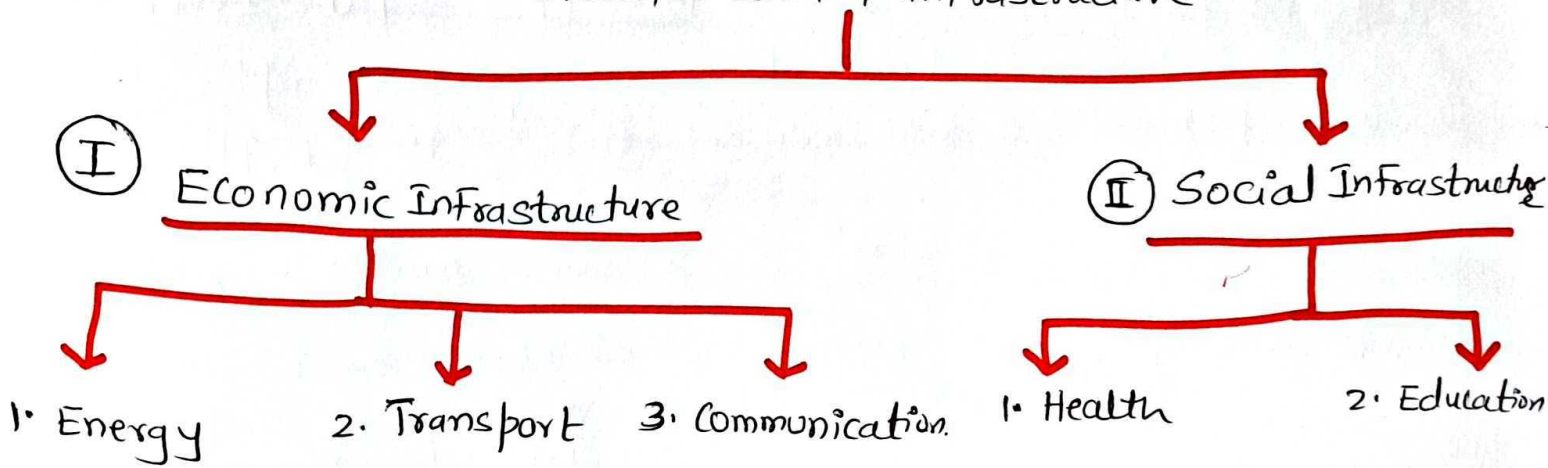 Infrastructure
I
Economic Infrastructure
II Social Infrastructure
1. Energy
2. Transport
3. Communication.
1. Health
2. Education